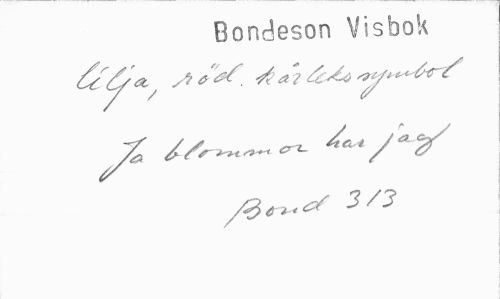 Bondeson Visbok
lilja, röd. kärlekssymbol
Ja blommor har jag
Bond 313